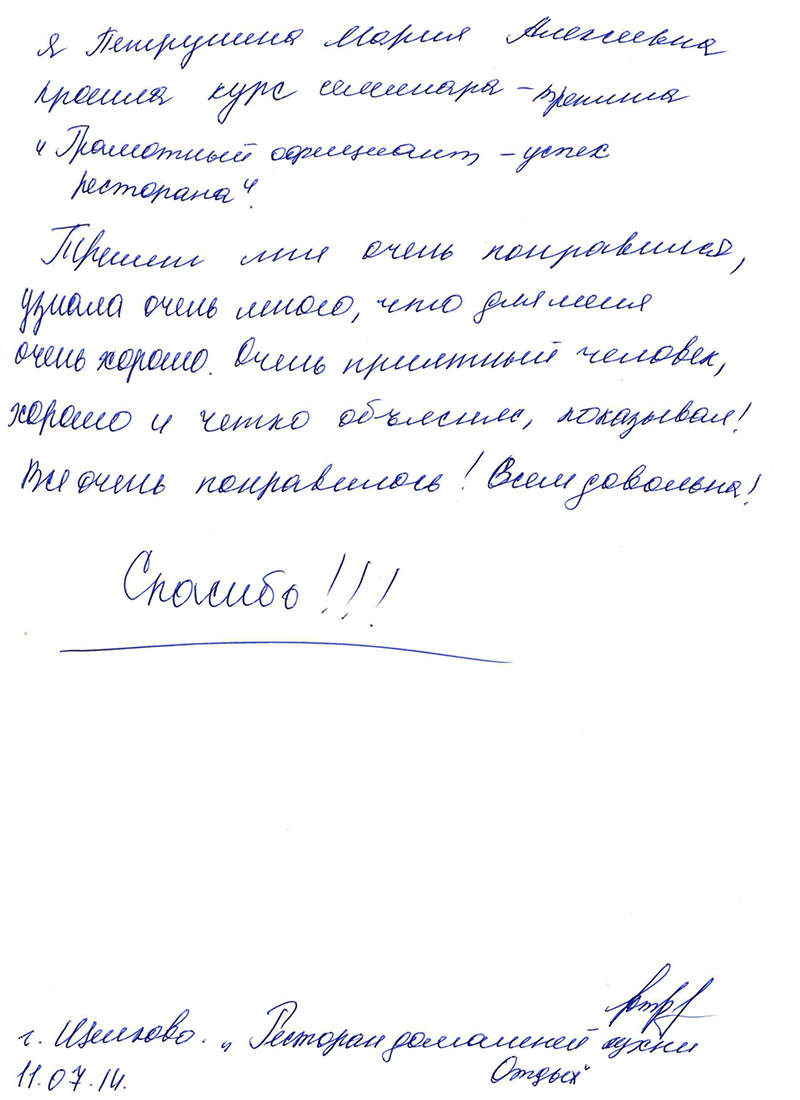 Я Петрушина Мария Алексеевна
прошла курс семинара - тренинга
"Грамотный официант - успех
ресторана".
Тренинг мне очень понравился,
узнала очень много, что для меня
очень хорошо. Очень приятный человек,
хорошо и четко объяснял, показывал!
Все очень понравилось! Всем довольна!
Спасибо!!!
г. Щелково. "Ресторан домашней кухни
11.07.14. Отдых"